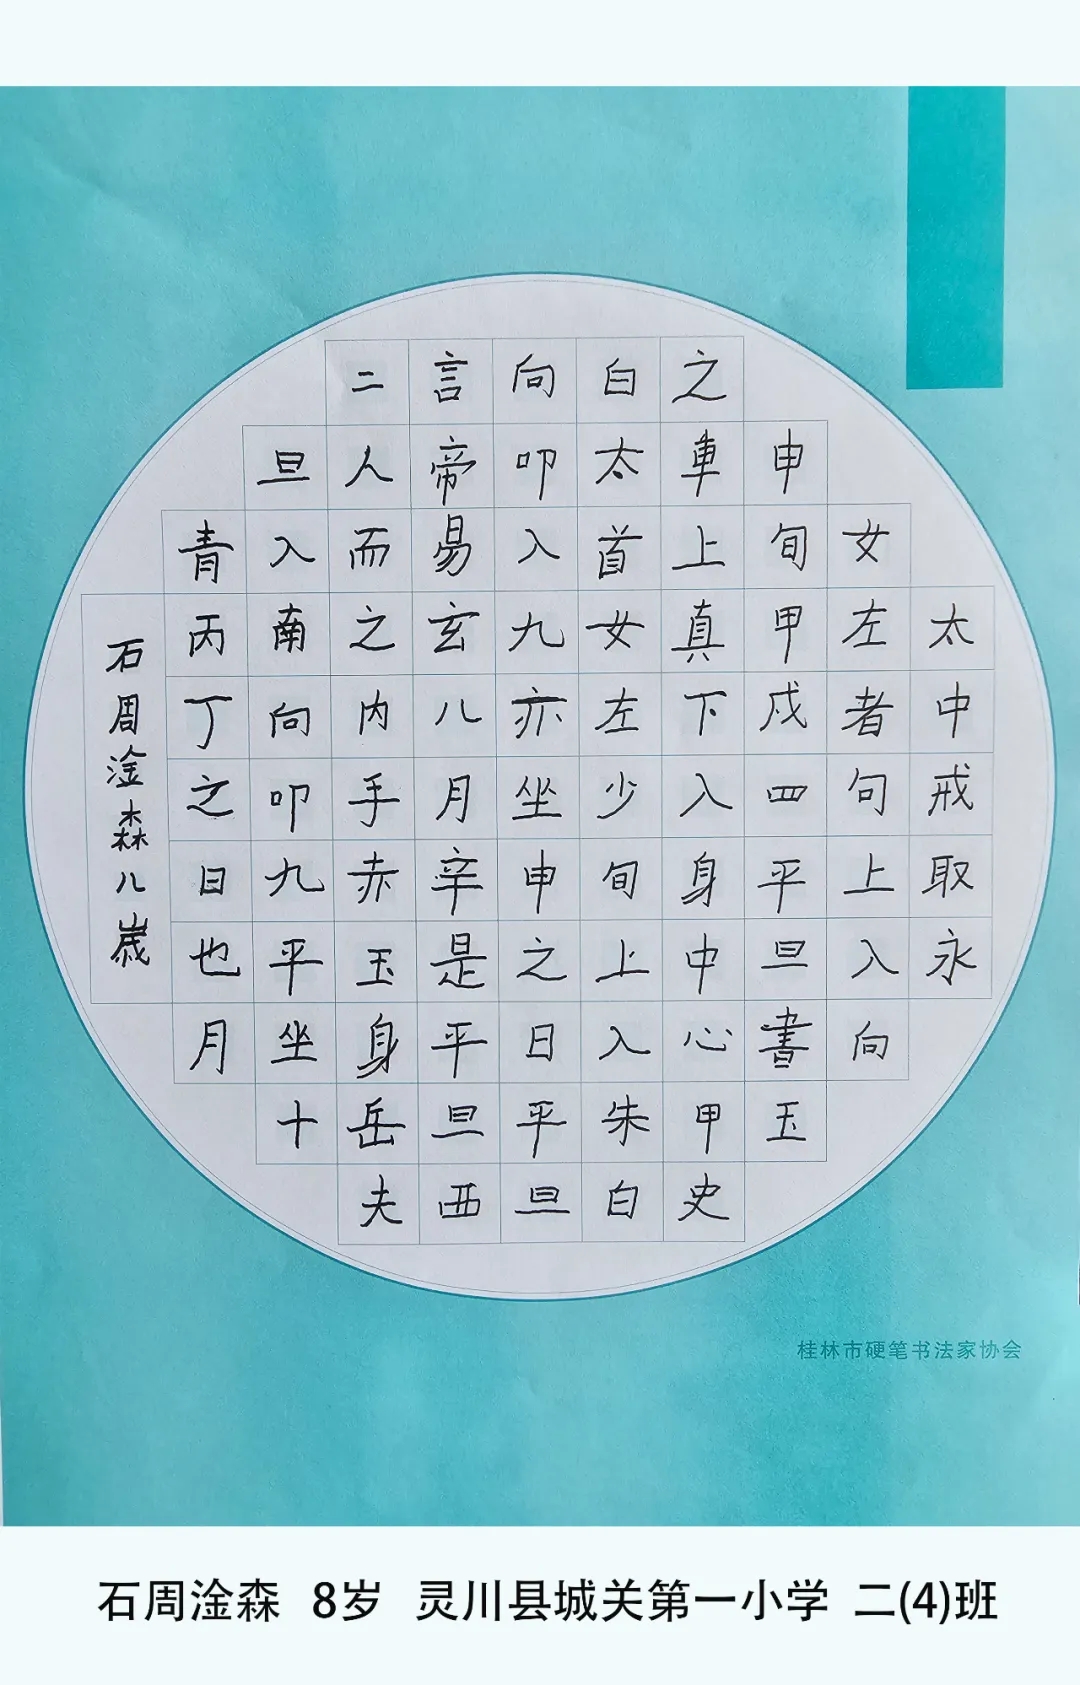 太中戒取永
女左者句上入向
申旬甲戍四平旦書玉
之車上真下入身中心甲史
白太首女左少旬上入朱白
向叩入九亦坐申之日平旦
言帝易玄八月辛是平旦西
二人而之内手赤玉身岳夫
旦入南向叩九平坐十
青丙丁之日也月
石周淦森八歲
桂林市硬笔书法家协会
石周淦森 8岁 灵川县城关第一小学 二(4)班